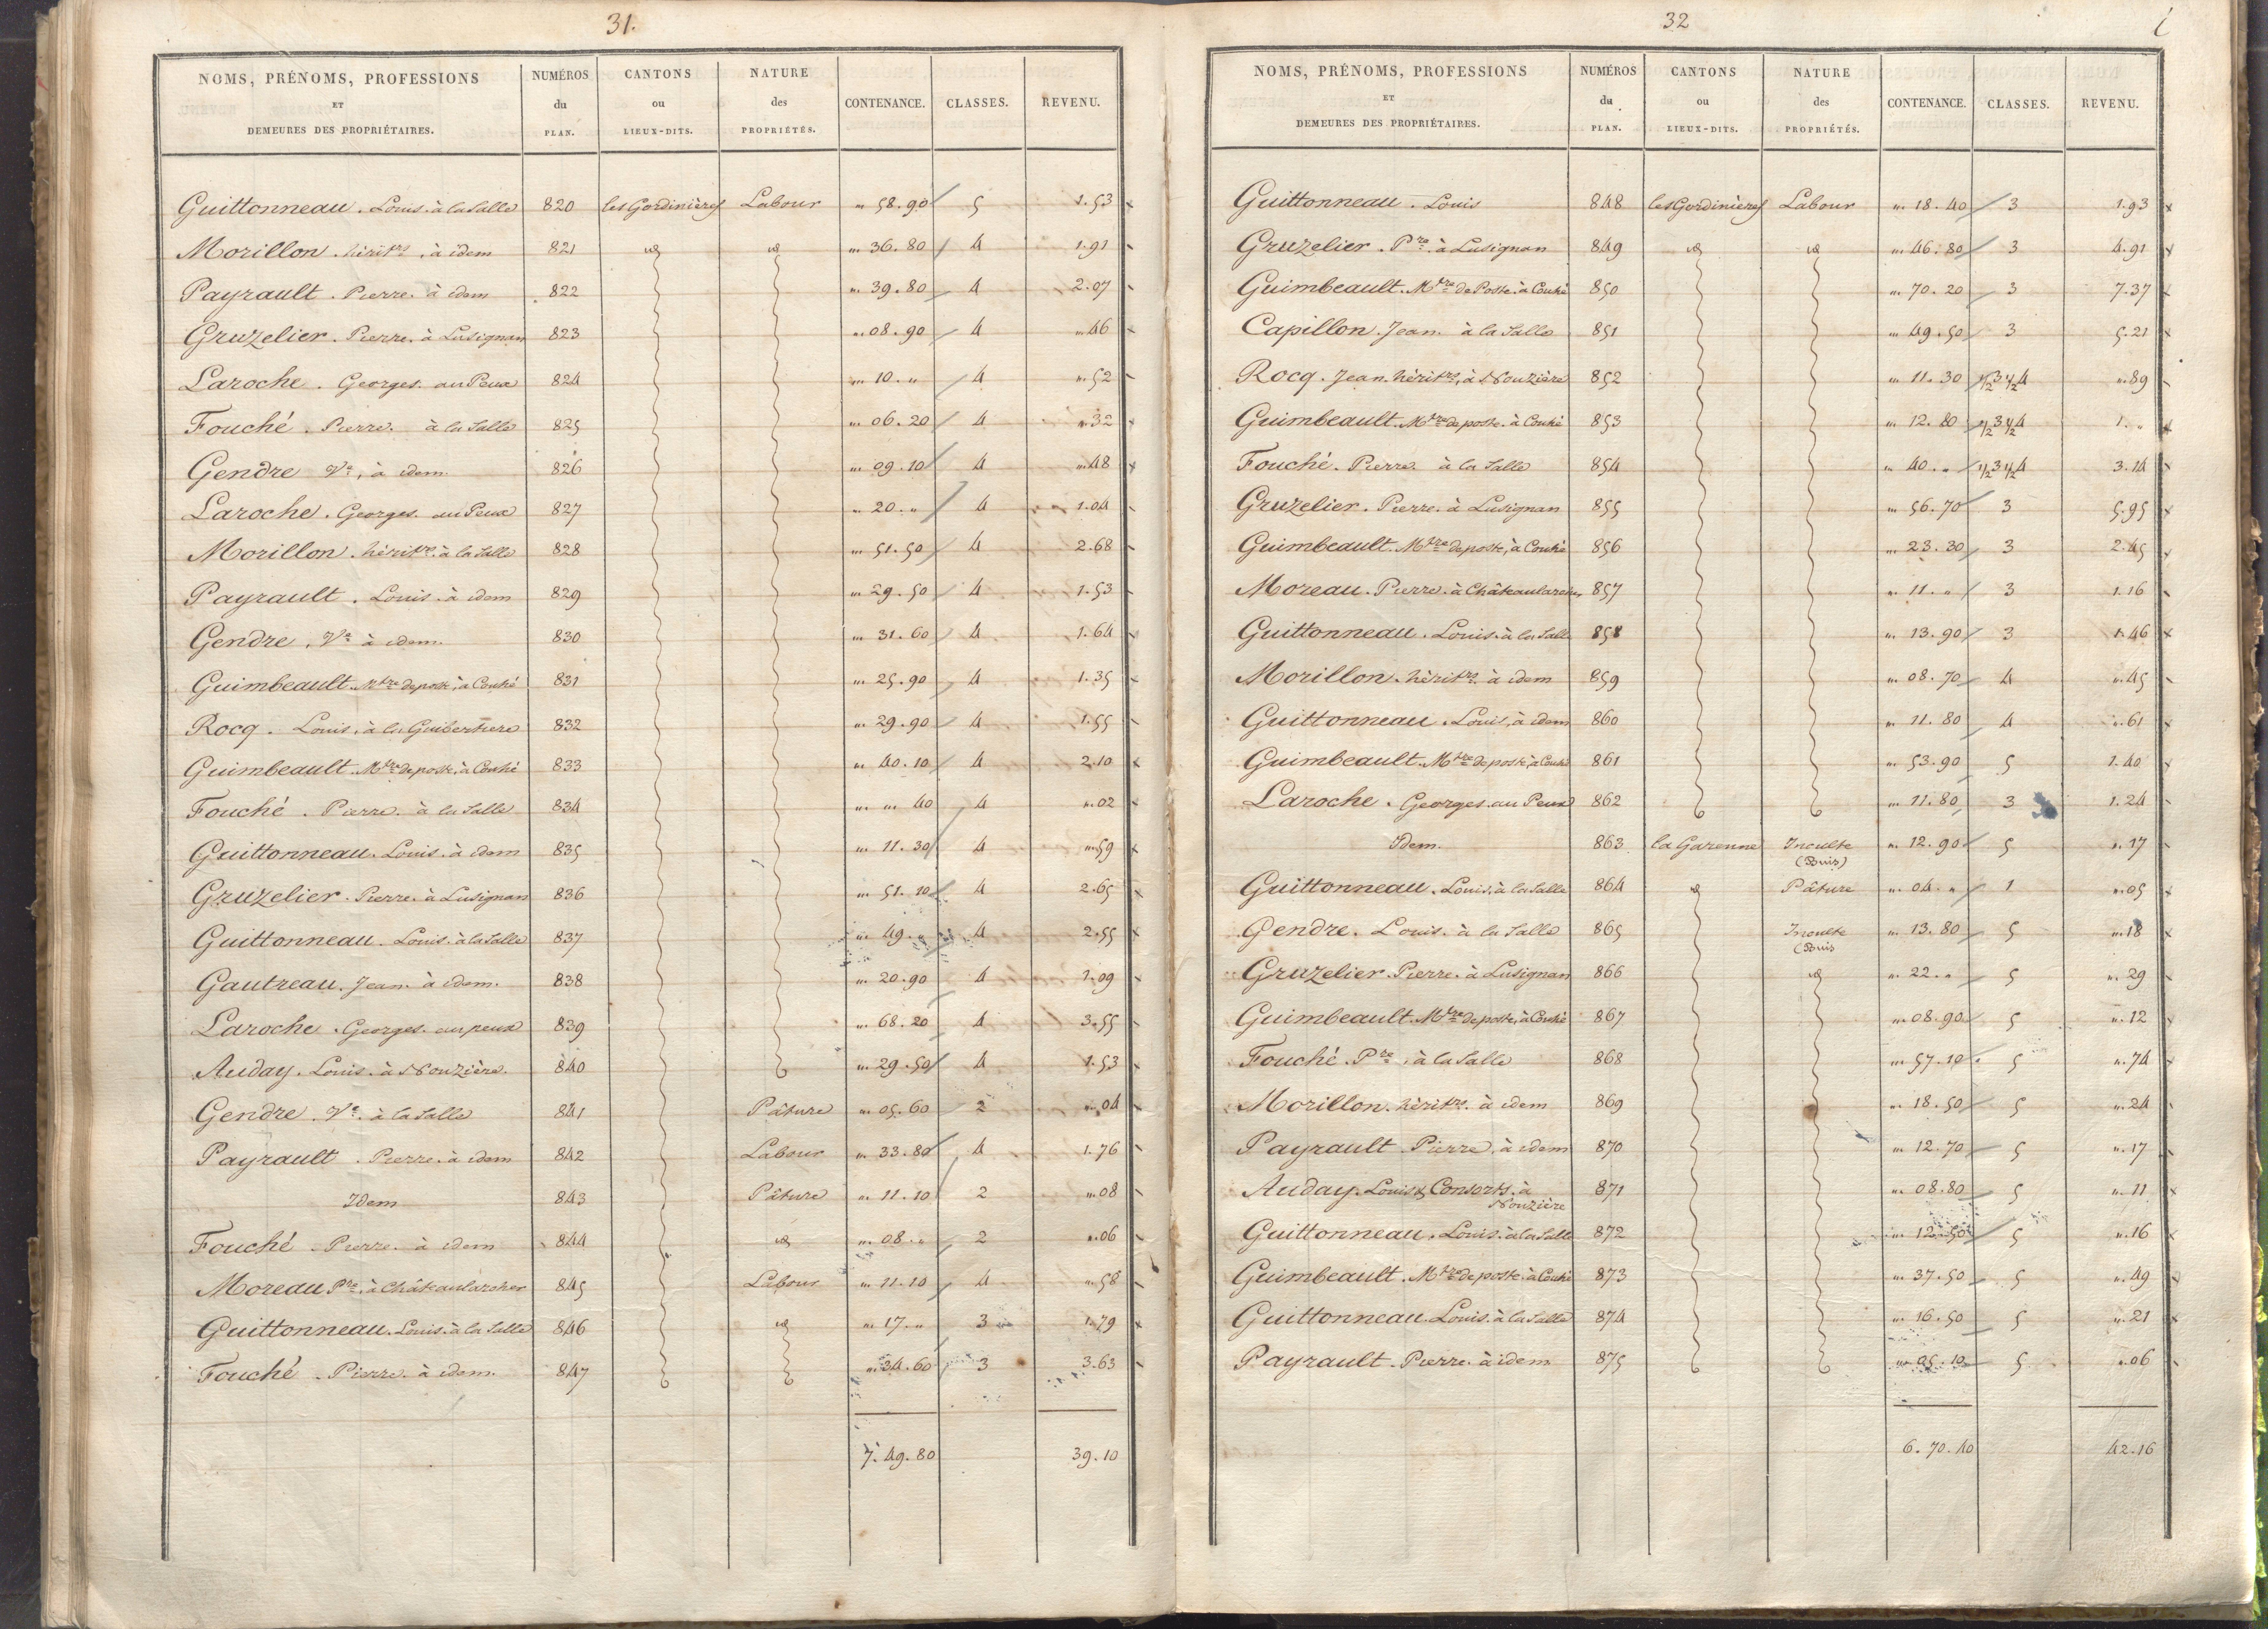 31.
NOMS, PRÉNOMS, PROFESSIONS ET DEMEURES DES PROPRIÉTAIRES. NUMÉROS du PLAN. CANTONS ou LIEUX-DITS. NATURE des PROPRIÉTÉS. CONTENANCE. CLASSES. REVENU.
Guittonneau. Louis. à la Salle 820 les Gordinières Labour " 58.90 5 1.53
Morillon. hérit.rs, à idem 821 id id " 36.80 4 1.91
Payrault. Pierre. à idem 822 " 39.80 4 2.07
Gruzelier. Pierre. à Lusignan 823 " 08.90 4 ".46
Laroche. Georges. au Peux 824 " 10. " 4 ".52
Fouché. Pierre. à la Salle 825 " 06.20 4 ".32
Gendre Ve, à idem. 826 " 09.10 4 ".48
Laroche. Georges. au Peux 827 " 20. " 4 1.04
Morillon. hérit.rs à la Salle 828 " 51.50 4 2.68
Payrault. Louis. à idem 829 " 29.50 4 1.53
Gendre, Ve à idem. 830 " 31.60 4 1.64
Guimbeault. Mtre de poste, à Couhé 831 " 25.90 4 1.35
Rocq. Louis, à la Guibertiere 832 " 29.90 4 1.55
Guimbeault. Mtre de poste, à Couhé 833 " 40.10 4 2.10
Fouché. Pierre. à la Salle 834 " " 40 4 ".02
Guittonneau. Louis. à idem 835 " 11.30 4 ".59
Gruzelier. Pierre. à Lusignan 836 " 51.10 4 2.65
Guittonneau. Louis. à la Salle 837 " 49. " 4 2.55
Gautreau. Jean. à idem. 838 " 20.90 4 1.09
Laroche. Georges. au peux 839 " 68.20 4 3.55
Auday. Louis. à Nouzière. 840 " 29.50 4 1.53
Gendre. Ve. à la Salle 841 Pâture " 05.60 2 ".04
Payrault. Pierre. à idem 842 Labour " 33.80 4 1.76
Idem 843 Pâture " 11.10 2 ".08
Fouché. Pierre. à idem 844 id " 08. " 2 ".06
Moreau Pre, à Châteaularcher 845 Labour " 11.10 4 ".58
Guittonneau. Louis. à la Salle 846 id " 17. " 3 1.79
Fouché. Pierre. à idem. 847 " 34.60 3 3.63
7.49.80 39.10
32
NOMS, PRÉNOMS, PROFESSIONS ET DEMEURES DES PROPRIÉTAIRES. NUMÉROS du PLAN. CANTONS ou LIEUX-DITS. NATURE des PROPRIÉTÉS. CONTENANCE. CLASSES. REVENU.
Guittonneau. Louis 848 les Gordinières Labour " 18.40 3 1.93
Gruzelier. Pre. à Lusignan 849 id id " 46.80 3 4.91
Guimbeault. Mtre de Poste. à Couhé 850 " 70.20 3 7.37
Capillon. Jean. à la Salle 851 " 49.50 3 5.21
Rocq. Jean. hérit.rs, à Nouzière 852 " 11.30 1/2 3 1/2 4 ".89
Guimbeault. Mtre de poste. à Couhé 853 " 12.80 1/2 3 1/2 4 1. "
Fouché. Pierre. à la Salle 854 " 40. " 1/2 3 1/2 4 3.14
Gruzelier. Pierre. à Lusignan 855 " 56.70 3 5.95
Guimbeault. Mtre de poste, à Couhé 856 " 23.30 3 2.45
Moreau. Pierre. à Châteaularcher 857 " 11. " 3 1.16
Guittonneau. Louis. à la Salle 858 " 13.90 3 1.46
Morillon. hérit.rs à idem 859 " 08.70 4 ".45
Guittonneau. Louis, à idem 860 " 11.80 4 ".61
Guimbeault. Mtre de poste, à Couhé 861 " 53.90 5 1.40
Laroche. Georges. au Peux 862 " 11.80 3 1.24
Idem. 863 la Garenne Inculte " 12.90 5 ".17
(Buis)
Guittonneau. Louis. à la Salle 864 id Pâture " 04. " 1 ".05
Gendre. Louis. à la Salle 865 Inculte " 13.80 5 ".18
(Buis
Gruzelier. Pierre. à Lusignan 866 id " 22. " 5 ".29
Guimbeault. Mtre de poste, à Couhé 867 " 08.90 5 ".12
Fouché. Pre, à la Salle 868 " 57.10 5 ".74
Morillon. hérit.rs. à idem 869 " 18.50 5 ".24
Payrault. Pierre, à idem 870 " 12.70 5 ".17
Auday. Louis & Consorts. à 871 " 08.80 5 ".11
Nouzière
Guittonneau. Louis. à la Salle 872 " 12.50 5 ".16
Guimbeault. Mtre de poste. à Couhé 873 " 37.50 5 ".49
Guittonneau. Louis. à la Salle 874 " 16.50 5 ".21
Payrault. Pierre. à idem 875 " 05.10 5 ".06
6.70.40 42.16